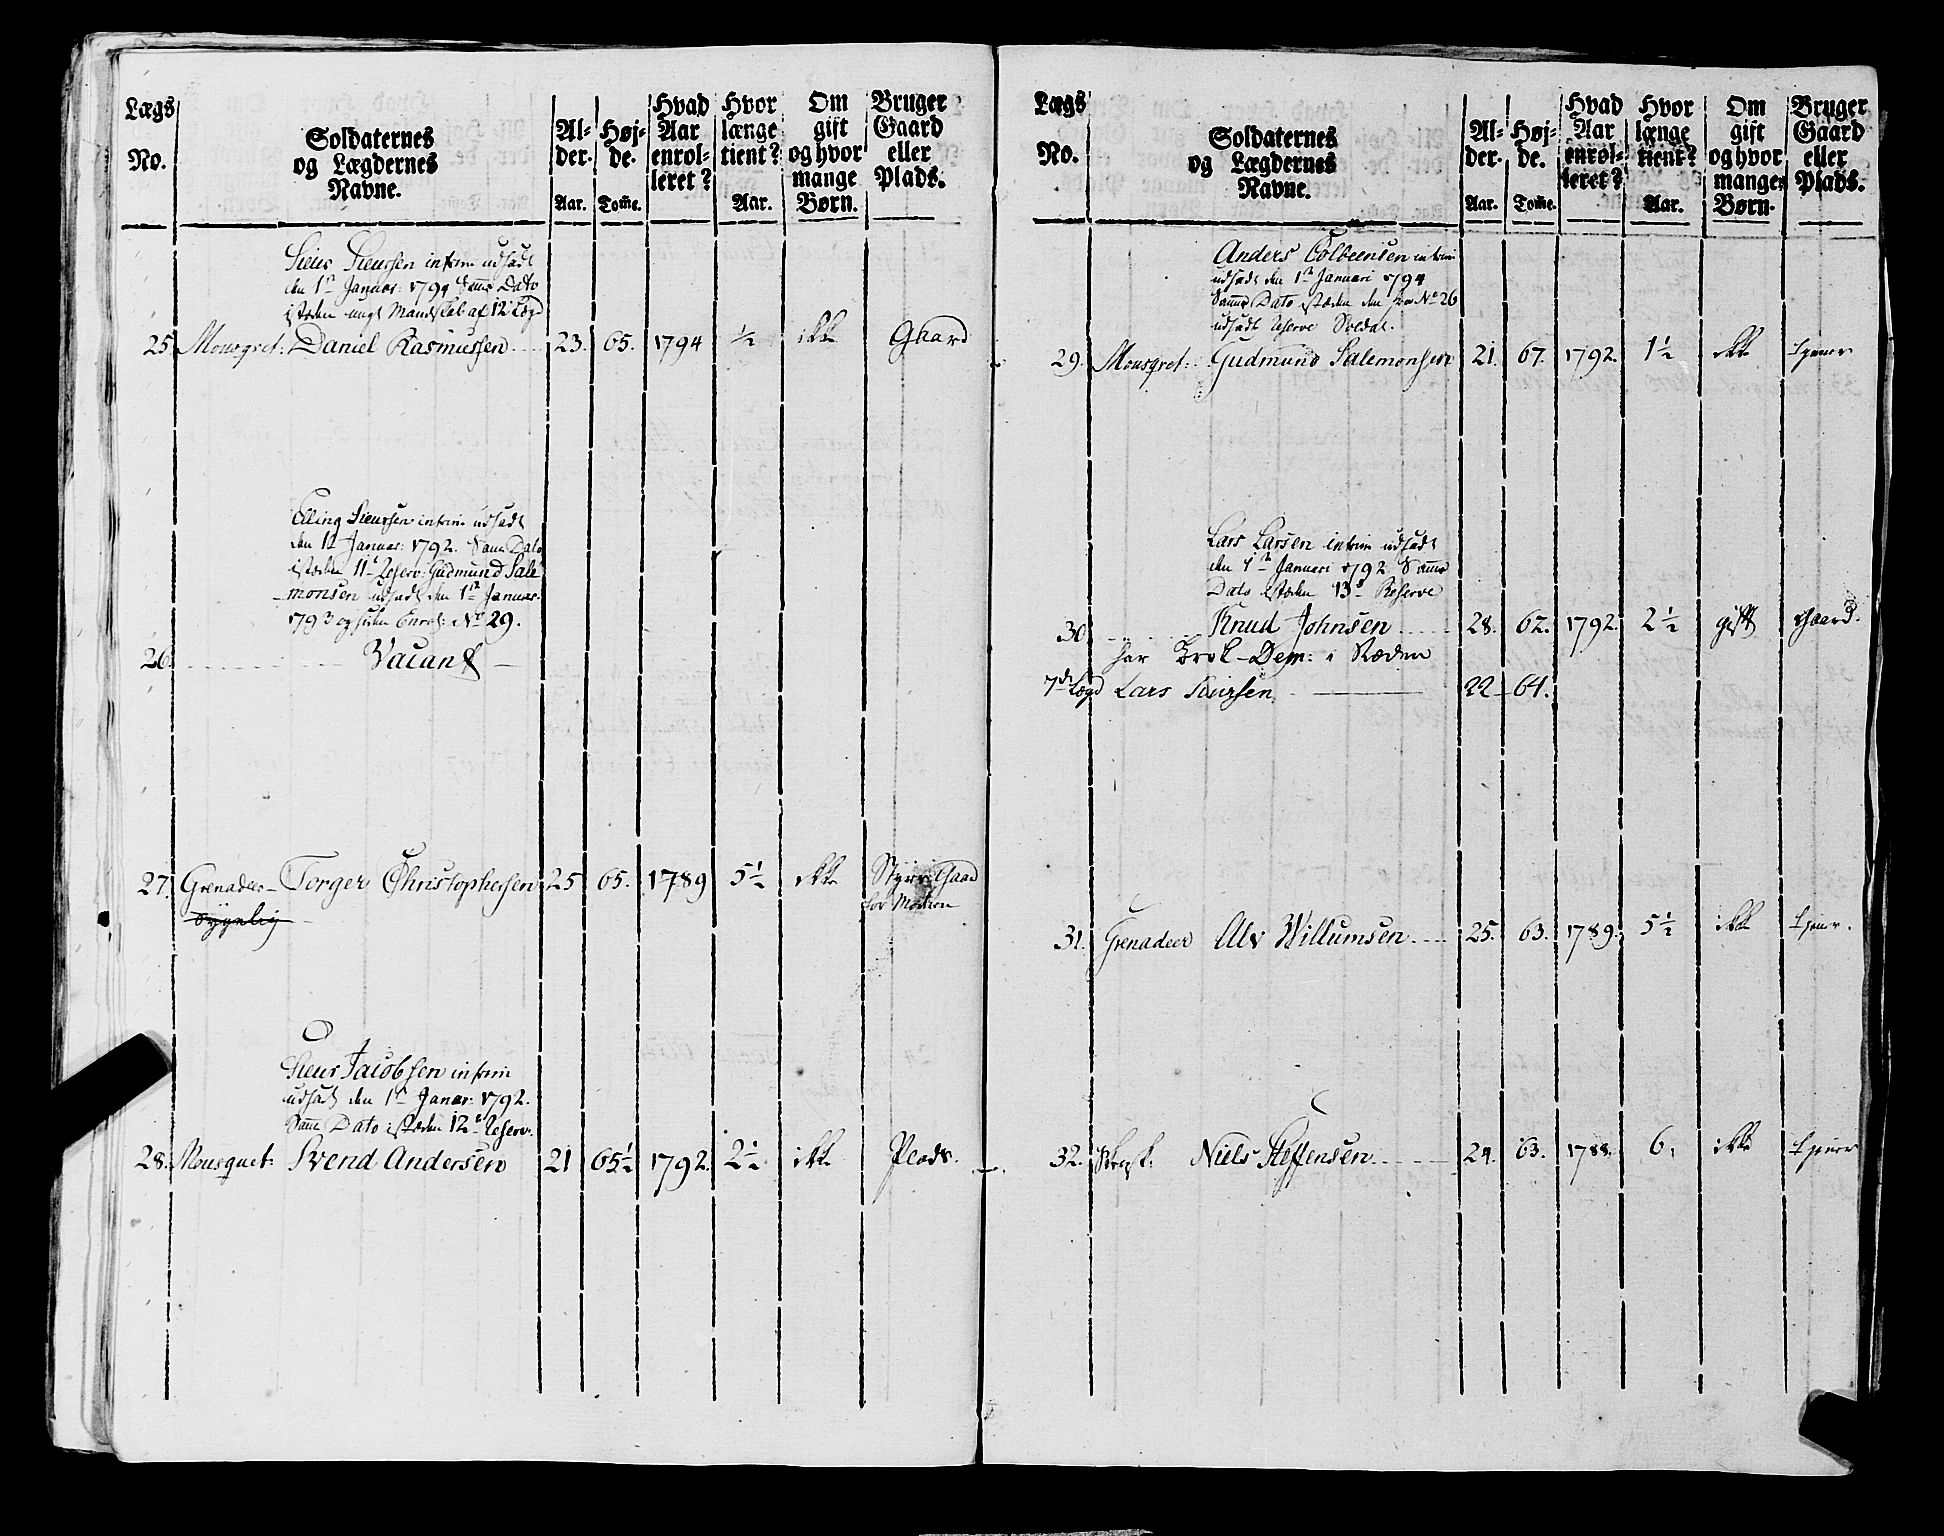 Lægs No. | Soldaternes og Lægdernes Navne. | Alder. Aar. | Højde. Tome. | Hvad Aar enrolleret? | Hvor længe tient? Aar. | Om gift og hvor mange Børn. | Bruger Gaard eller Plads.
Siur Siursen interim udsadt
den 1te Januar: 1794 Samme Dato
isteden ungt Mandskab af 12 Lægd
25 Mousqet: Daniel Rasmussen 23. 65. 1794 ½ ikke Ghard
Elling Siursen interim udsadt
den 1te Januar: 1792. Samme Dato
isteden 11te Reserv: Gudmund Sale
monsen udsadt den 1te Januar.
1793 og siden Enrol: No 29.
26. Vacant
27. Grenadeer Torger Christophersen 25 65. 1789 5½ ikke Styrer Gaard
Sygelig for Moderen
Siur Jacobsen interim
udsadt den 1te Januar: 1792.
Samme Dato isteden 12te Reserv:
28. Mousquet: Svend Andersen 21 65½ 1792. 2½ ikke Plads.
Lægs No. | Soldaternes og Lægdernes Navne. | Alder. Aar. | Højde. Tome. | Hvad Aar enrolleret? | Hvor længe tient? Aar. | Om gift og hvor mange Børn. | Bruger Gaard eller Plads.
Anders Colbeensen interim
udsadt den 1te Januari 1794
Samme Dato isteden den fra No 26
udsadt Reserve Soldat.
29. Mousqet: Gudmund Salemonsen 21. 67. 1792. 1½ ikke tjener
Lars Larsen interim udsadt
den 1te Januari 1792 Samme
Dato isteden 13te Reserve
30 Knud Johnsen 28. 62. 1792. 2½ gift Gaard.
har Brok-Dem: i Ræden
7de Lægd Lars Siursen 22 64.
31. Grenadeer Alv Willumsen 25. 63. 1789. 5½ ikke tjener.
32. Niels Steffensen 24. 63. 1788. 6. ikke tjener